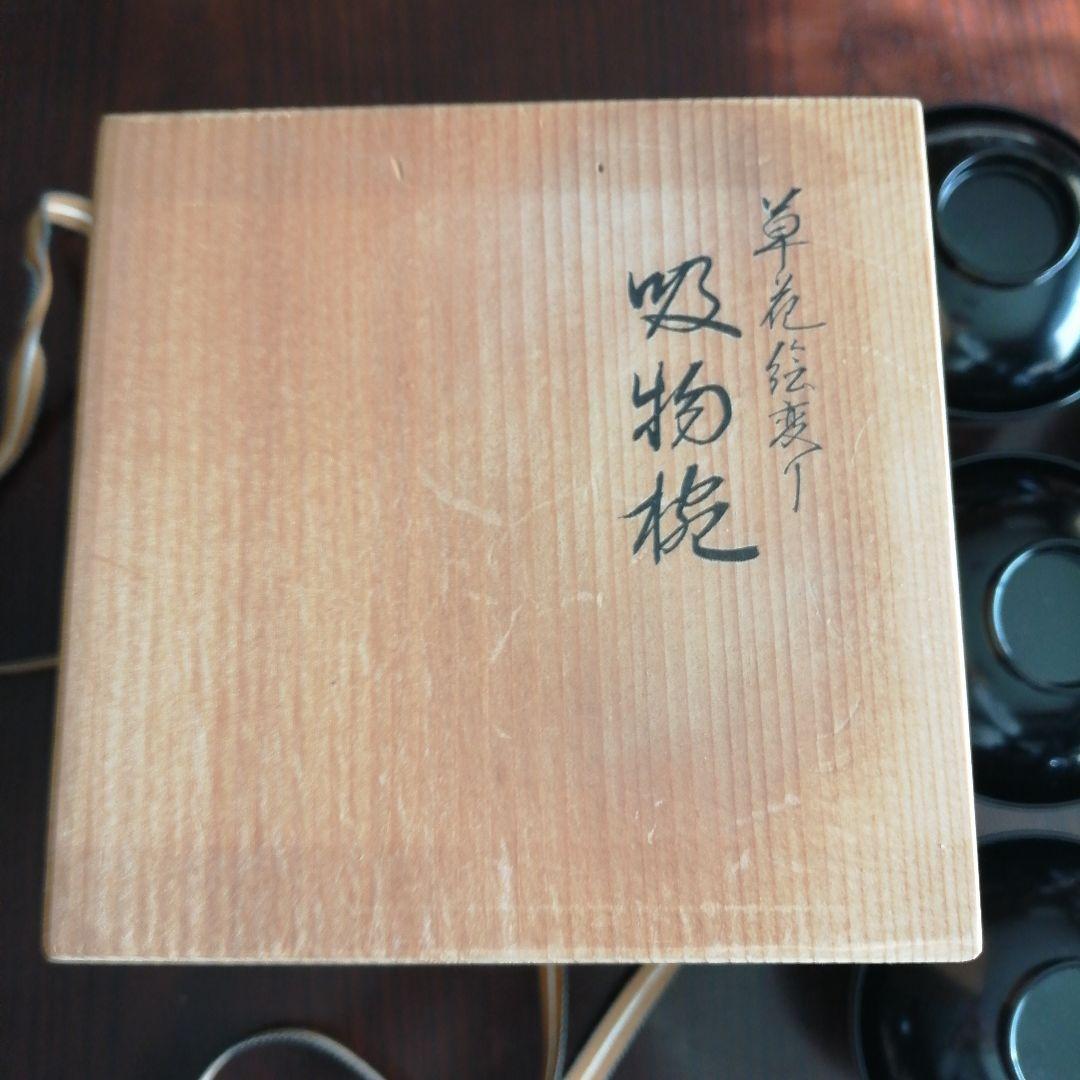 草花絵変り
吸物椀